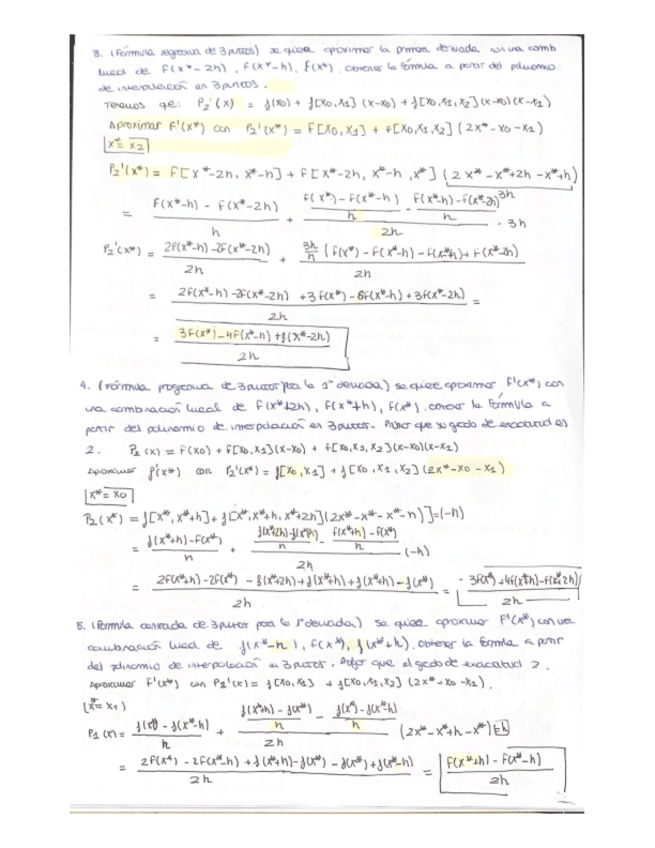 3. (Fórmula regresiva de 3 puntos) se quiere aproximar la primera derivada con una comb.
lineal de F(x*-2h), F(x*-h), F(x*). Obtener la fórmula a partir del polinomio
de interpolación en 3 puntos.
Tenemos que: P₂'(x) = f(x₀) + f[x₀,x₁](x-x₀) + f[x₀,x₁,x₂](x-x₀)(x-x₁)
Aproximar F'(x*) con P₂'(x*) = F[x₀,x₁] + F[x₀,x₁,x₂](2x*-x₀-x₁)
x*=x₂
P₂'(x*) = F[x*-2h, x*-h] + F[x*-2h, x*-h, x*](2x*-x*+2h-x*+h)
= (F(x*-h) - F(x*-2h))/h + ((F(x*)-F(x*-h))/h - (F(x*-h)-F(x*-2h))/h)/2h · 3h
P₂'(x*) = (2F(x*-h)-2F(x*-2h))/2h + (3h/h (F(x*)-F(x*-h)-F(x*-h)+F(x*-2h)))/2h
= (2F(x*-h)-2F(x*-2h)+3F(x*)-6F(x*-h)+3F(x*-2h))/2h =
= (3F(x*)-4F(x*-h)+f(x*-2h))/2h
4. (Fórmula progresiva de 3 puntos para la 1ª derivada) se quiere aproximar F'(x*) con
una combinación lineal de F(x*+2h), F(x*+h), F(x*). Obtener la fórmula a
partir del polinomio de interpolación en 3 puntos. Probar que su grado de exactitud es
2. P₂(x) = F(x₀) + F[x₀,x₁](x-x₀) + F[x₀,x₁,x₂](x-x₀)(x-x₁)
Aproximar f'(x*) con P₂'(x*) = f[x₀,x₁] + f[x₀,x₁,x₂](2x*-x₀-x₁)
x*=x₀
P₂(x*) = f[x*,x*+h] + f[x*,x*+h,x*+2h](2x*-x*-x*-h)]=(-h)
= (f(x*+h)-F(x*))/h + ((f(x*+2h)-f(x*+h))/h - (F(x*+h)-F(x*))/h)/2h (-h)
= (2F(x*+h)-2F(x*)-f(x*+2h)+f(x*+h)+f(x*+h)-f(x*))/2h = (-3F(x*)+4F(x*+h)-F(x*+2h))/2h
5. (Fórmula centrada de 3 puntos para la 1ª derivada) se quiere aproximar F'(x*) con una
combinación lineal de f(x*-h), F(x*), f(x*+h). Obtener la fórmula a partir
del polinomio de interpolación en 3 puntos. Probar que el grado de exactitud 2.
Aproximar F'(x*) con P₂'(x) = f[x₀,x₁] + f[x₀,x₁,x₂](2x*-x₀-x₁).
(x*=x₁)
P₁(x) = (f(x*)-f(x*-h))/h + ((f(x*+h)-f(x*))/h - (f(x*)-f(x*-h))/h)/2h (2x*-x*+h-x*)=h
= (2F(x*)-2F(x*-h)+f(x*+h)-f(x*)-f(x*)+f(x*-h))/2h = (F(x*+h)-F(x*-h))/2h